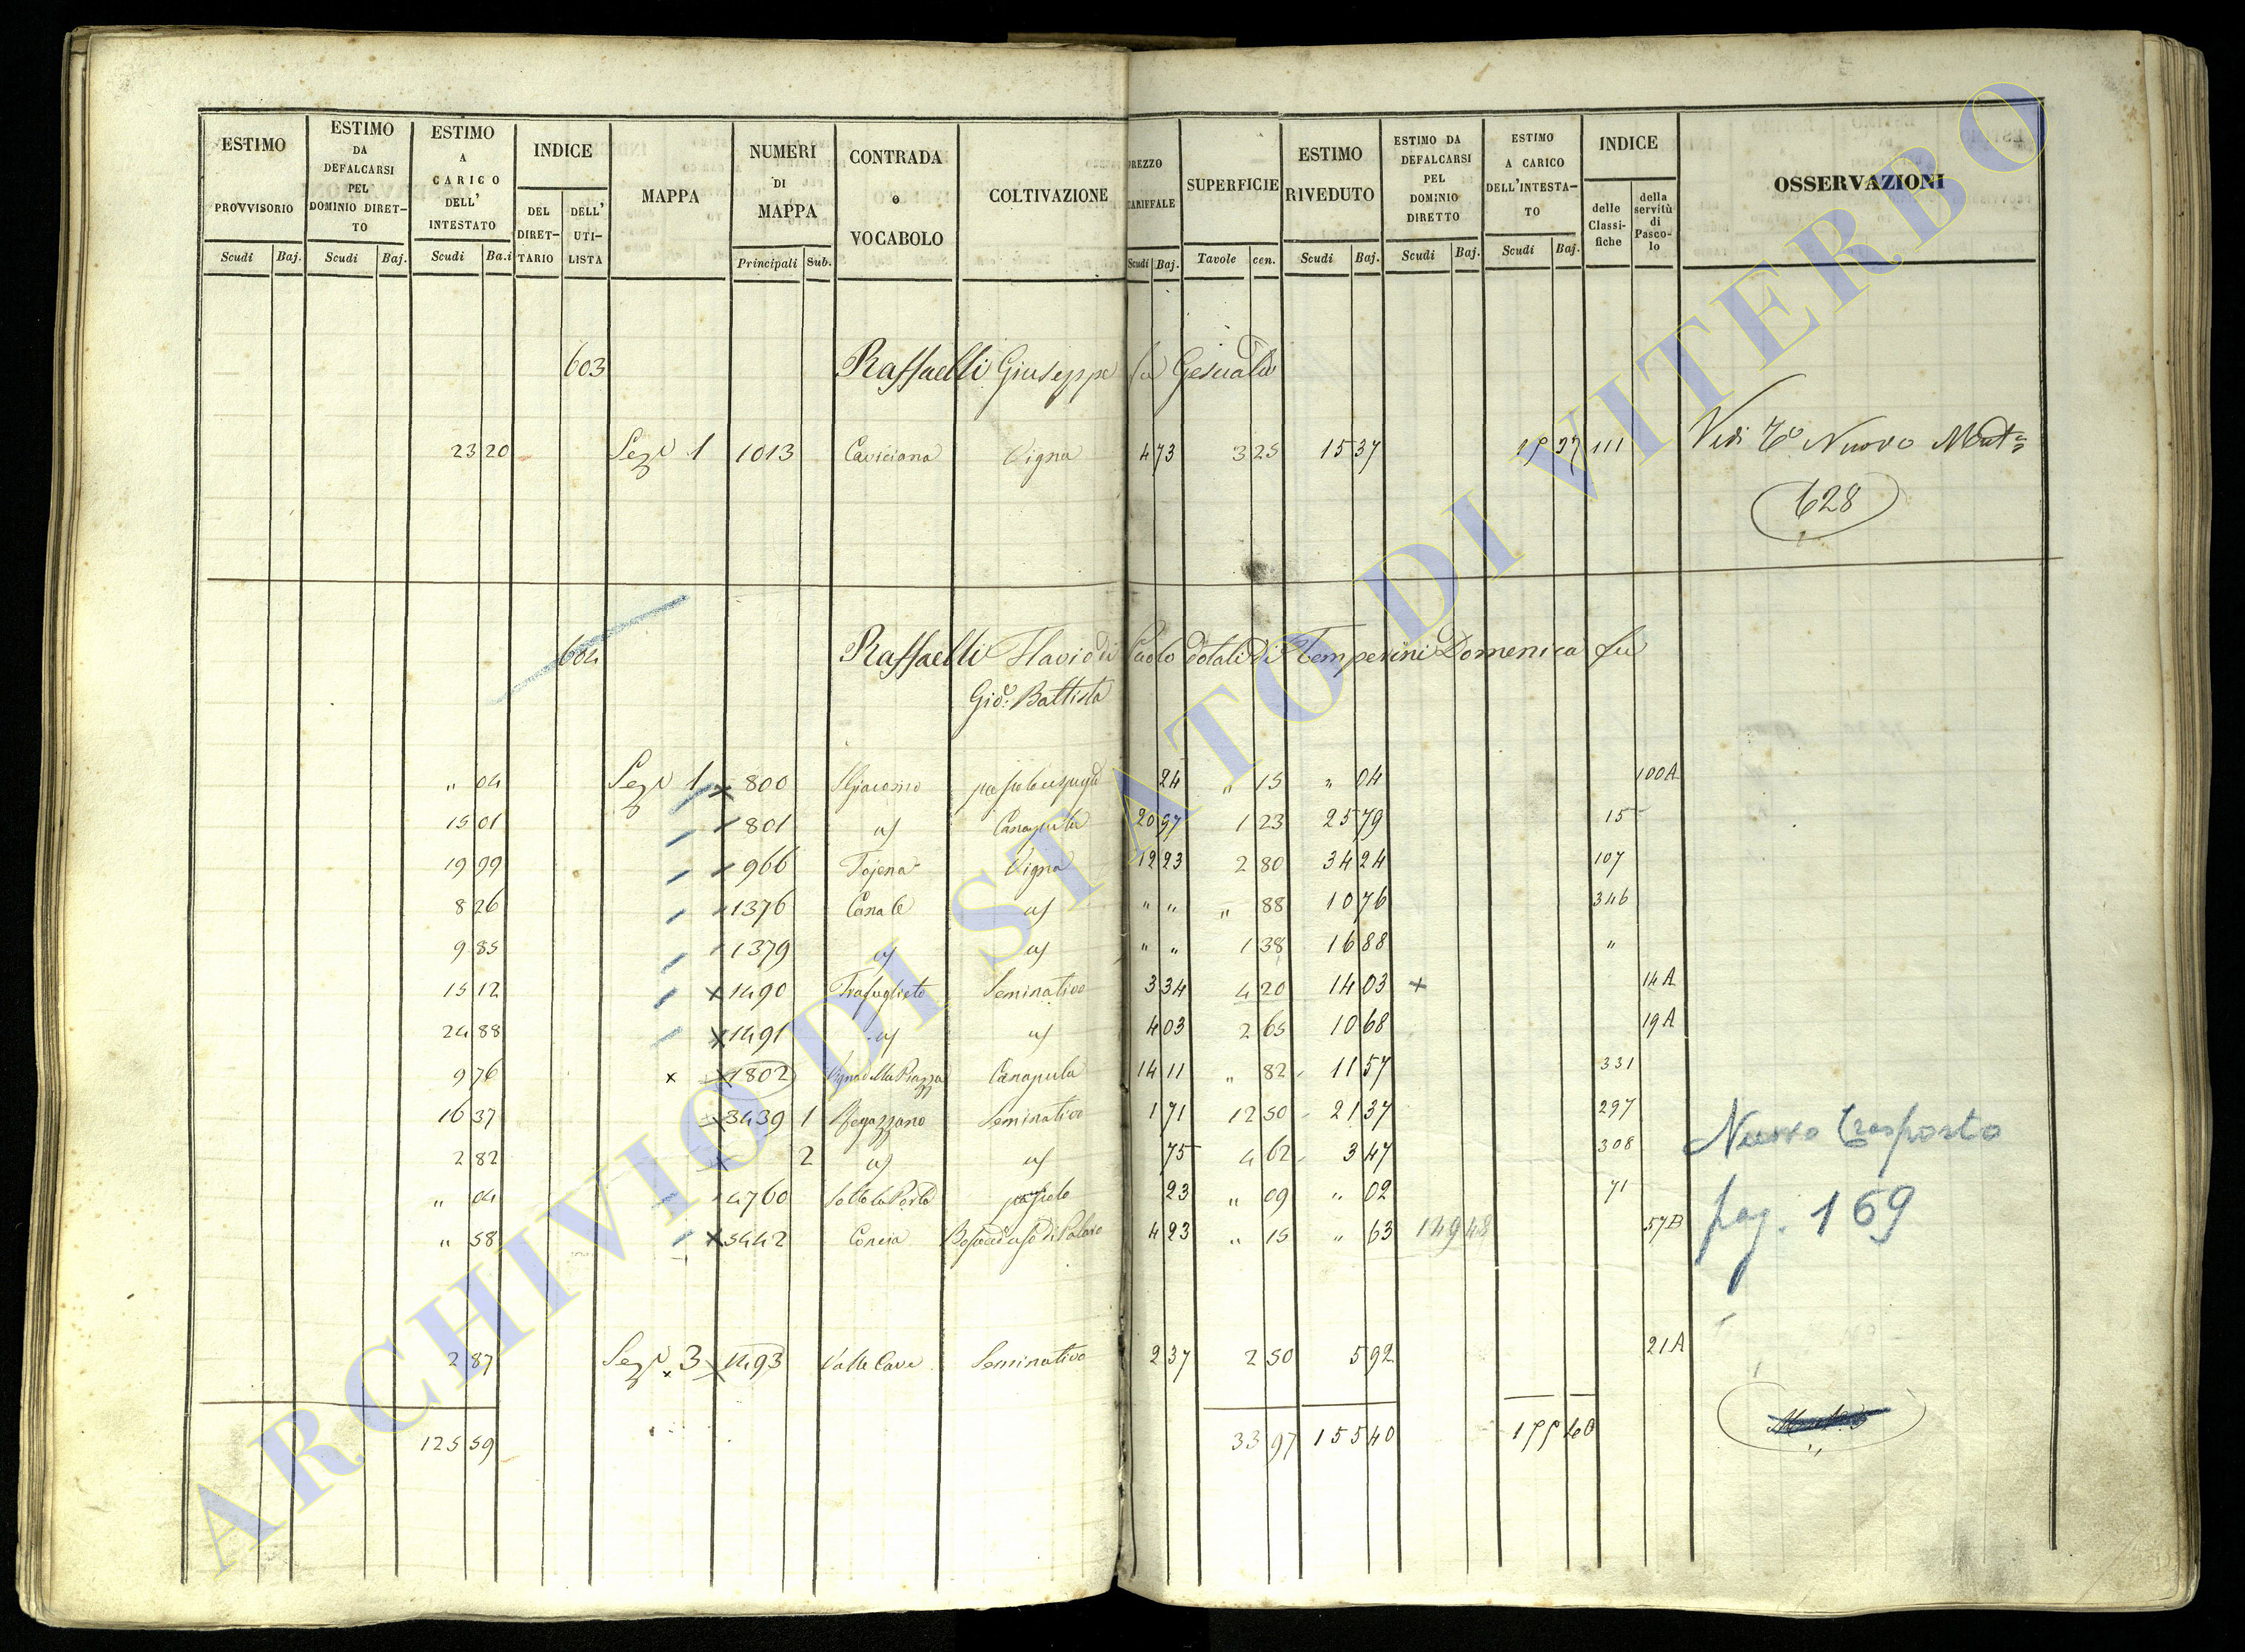 ESTIMO PROVVISORIO | ESTIMO DA DEFALCARSI PEL DOMINIO DIRETTO | ESTIMO A CARICO DELL' INTESTATO | INDICE | MAPPA | NUMERI DI MAPPA | CONTRADA o VOCABOLO | COLTIVAZIONE | PREZZO TARIFFALE | SUPERFICIE | ESTIMO RIVEDUTO | ESTIMO DA DEFALCARSI PEL DOMINIO DIRETTO | ESTIMO A CARICO DELL'INTESTATO | INDICE | OSSERVAZIONI
DEL DIRETTARIO | DELL' UTILISTA | delle Classifiche | della servitù di Pascolo
Scudi | Baj. | Scudi | Baj. | Scudi | Ba.i | Principali | Sub. | Scudi | Baj. | Tavole | cen. | Scudi | Baj. | Scudi | Baj. | Scudi | Baj.
603 Raffaelli Giuseppe fu Gesualdo
23 20 | Sez.e 1 | 1013 | Caviciana | Vigna | 4 73 | 3 25 | 15 37 | 111 | Vedi Nuovo
628
604 Raffaelli Flavio di Paolo dotali di Temperini Domenica fu
Gio: Battista
" 04 | Sez.e 1 | 800 | S. Giacomo | 24 | " 15 | " 04 | 100A
15 01 | 801 | Canapula | 20 97 | 1 23 | 25 79 | 15
19 99 | 966 | Tojena | Vigna | 12 23 | 2 80 | 34 24 | 107
8 26 | 1376 | Canale | " " | " 88 | 10 76 | 346
9 85 | 1379 | " " | 1 38 | 16 88 | "
15 12 | 1490 | Trafuglieto | Seminativo | 3 34 | 4 20 | 14 03 | 14A
24 88 | 1491 | 4 03 | 2 65 | 10 68 | 19A
9 76 | 1802 | Canapula | 14 11 | " 82 | 11 57 | 331
16 37 | 3439 | 1 | Seminativo | 1 71 | 12 50 | 21 37 | 297
2 82 | 2 | 75 | 4 62 | 3 47 | 308
" 04 | 4760 | Sotto la Porta | pascolo | 23 | " 09 | " 02 | 71
" 58 | 5442 | 4 23 | " 15 | " 63 | 149 48 | 57B
Nuovo trasporto
pag. 169
2 87 | Sez.e 3 | 1493 | Valle Cave | Seminativo | 2 37 | 2 50 | 5 92 | 21A
125 59 | 33 97 | 155 40
ARCHIVIO DI STATO DI VITERBO